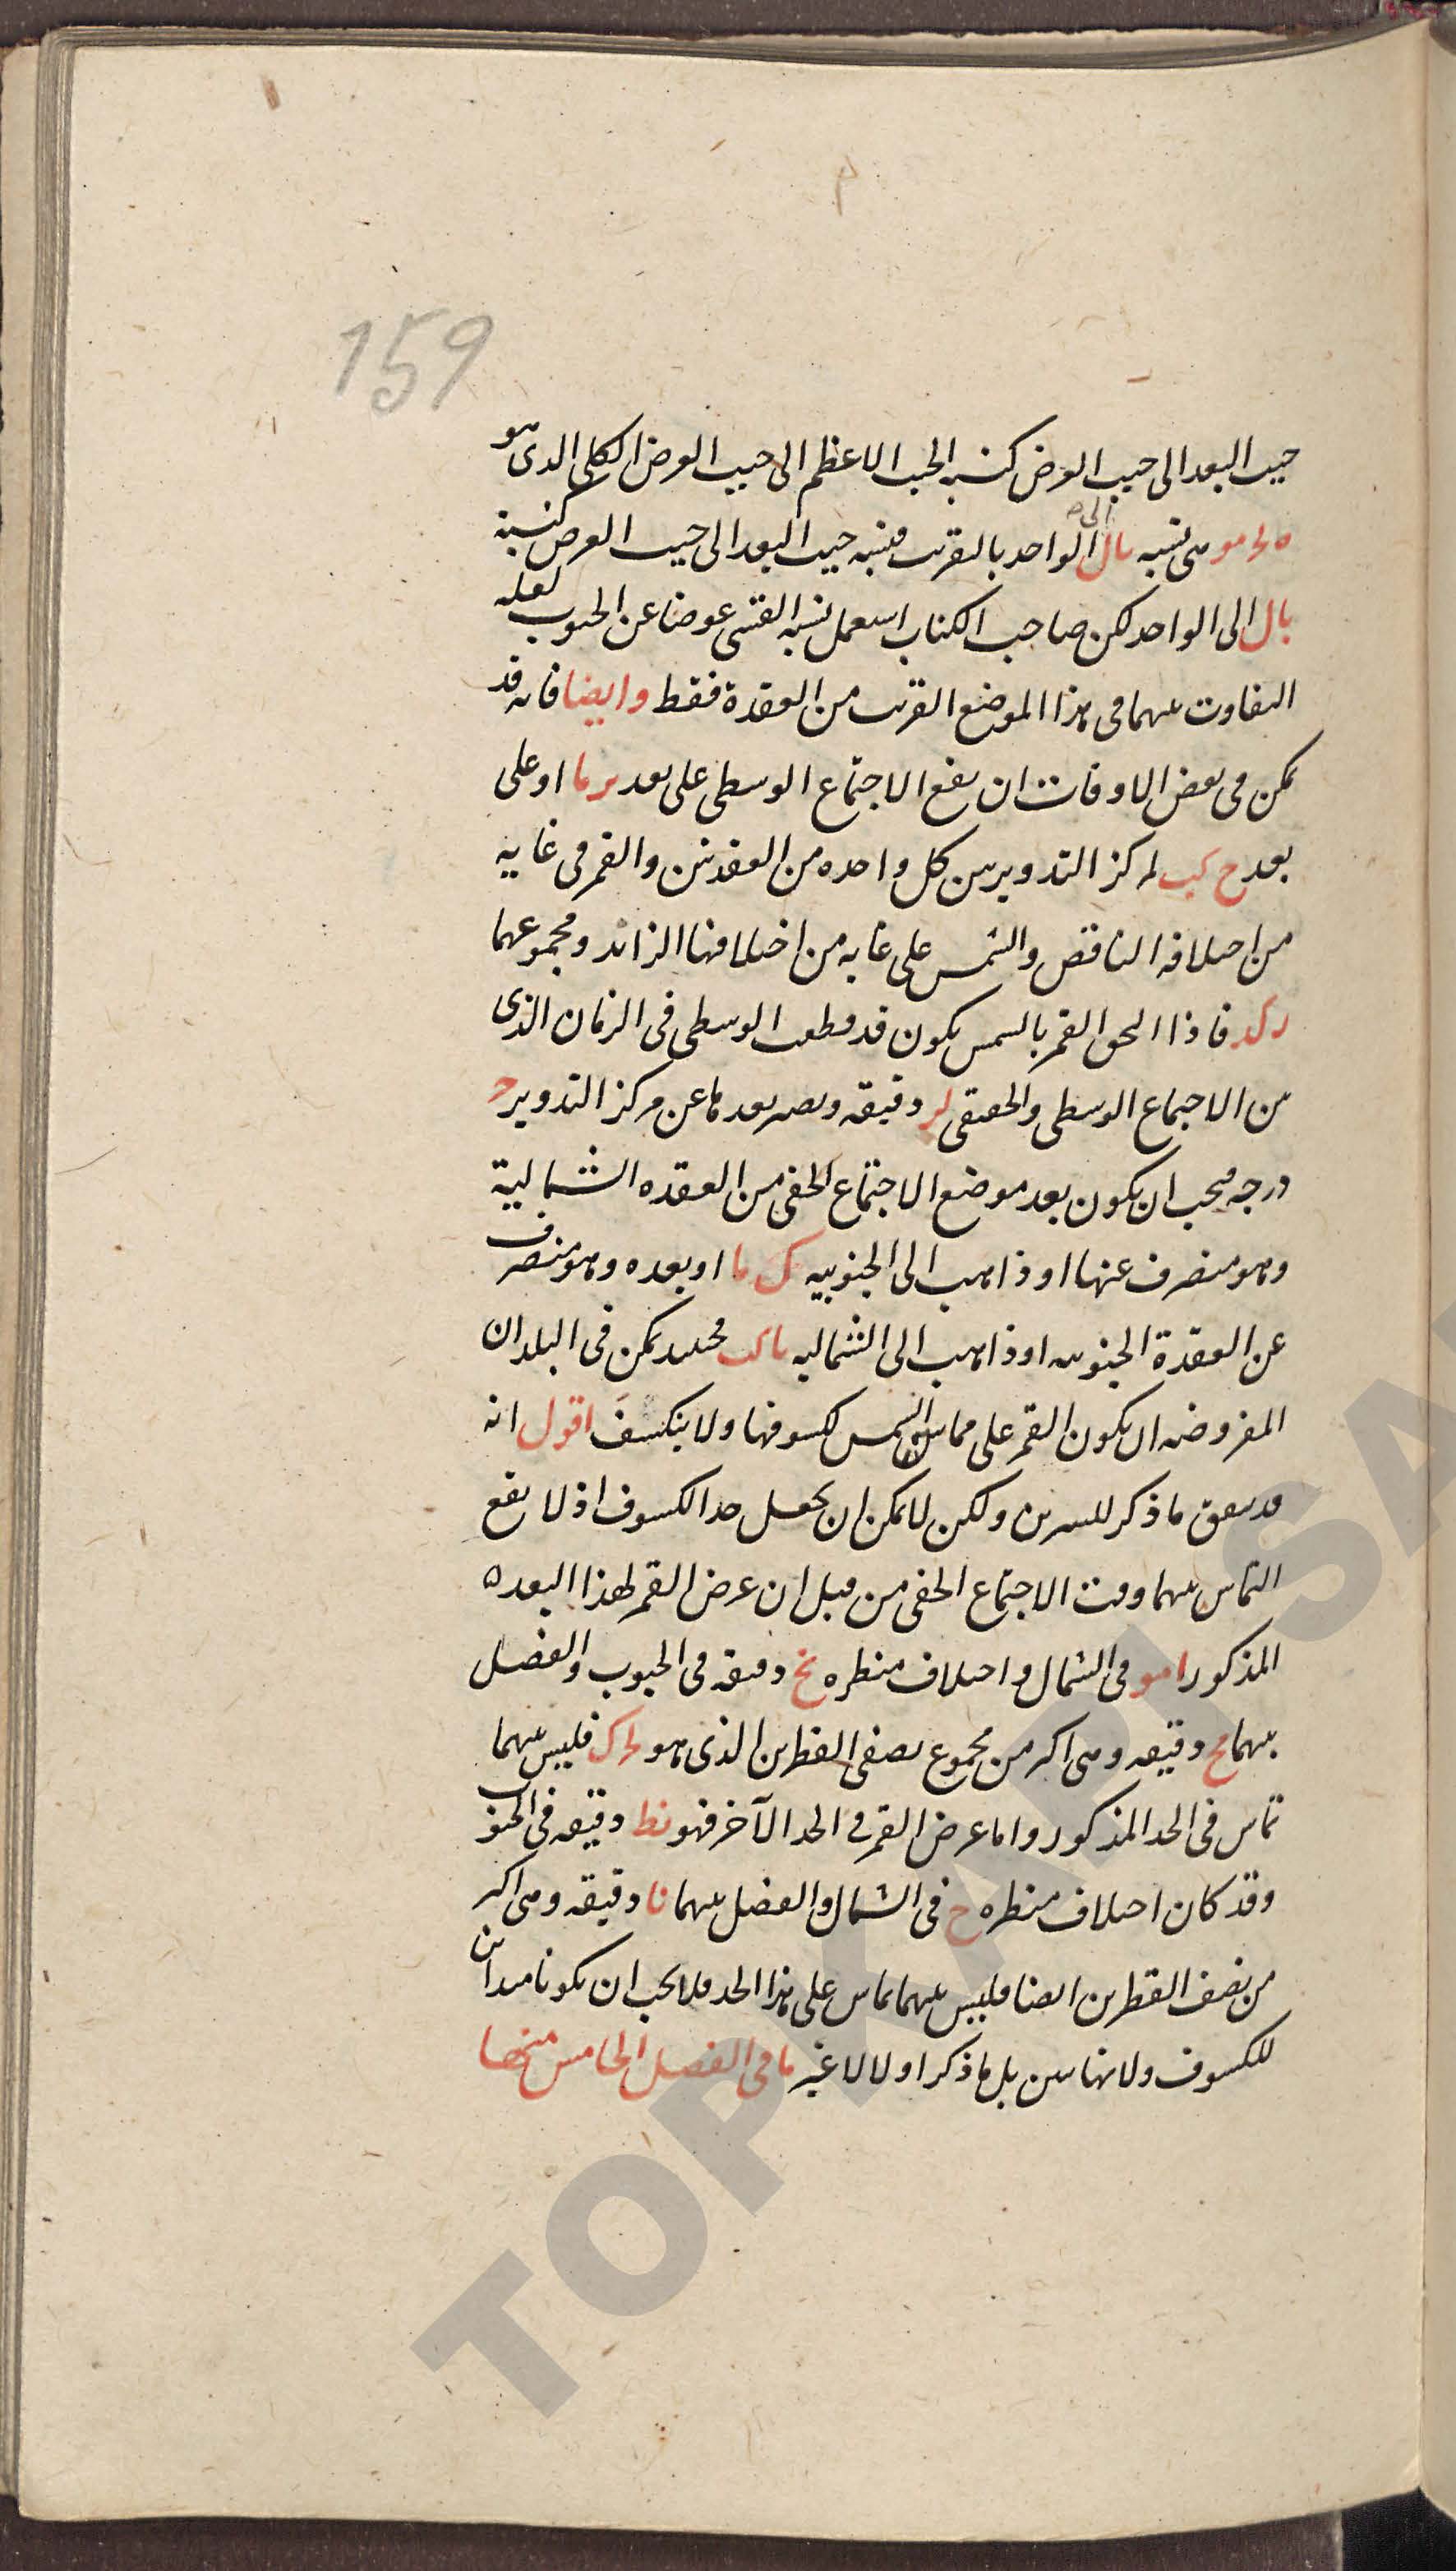 159
جيب البعد الى جيب العرض كنسبه الجيب الاعظم الى جيب العرض الكلى الذى هو
ه لح مو هى نسبه يا ل الى ه الواحد بالتقريب فنسبه جيب البعد الى جيب العرض كنسبة
يا ل الى الواحد لكن صاحب الكتاب استعمل نسبه القسى عوضا عن الجيوب لقله
التفاوت بينهما فى هذا الموضع القريب من العقدة فقط وايضا فانه قد
يمكن فى بعض الاوقات ان يقع الاجتماع الوسطى على بعد ير ما او على
بعد ح كب لمركز التدوير من كل واحده من العقدتين والقمر فى غايه
من اختلافه الناقص والشمس على غايه من اختلافها الزائد ومجموعهما
ر كد فاذا الحق القمر بالشمس يكون قد قطعت الوسطى فى الزمان الذى
بين الاجتماع الوسطى والحقيقى لر دقيقه ويصير بعدها عن مركز التدوير ح
درجه فيجب ان يكون بعد موضع الاجتماع الحقى من العقده الشمالية
وهو منصرف عنها او ذاهب الى الجنوبيه ك ما او بعده وهو منصرف
عن العقدة الجنوبيه او ذاهب الى الشماليه يا كب فحينئذ يمكن فى البلدان
المفروضه ان يكون القمر على مماس الشمس لكسوفها ولا ينكسف اقول انه
قد يتفق ما ذكر للنيرين ولكن لا يمكن ان يجعل حد الكسوف اذ لا يقع
التماس بينهما وقت الاجتماع الحقى من قبل ان عرض القمر لهذا البعد ه
المذكور ا مو فى الشمال واختلاف منظره نح دقيقه فى الجنوب والفضل
بينهما مح دقيقه وهى اكبر من مجموع نصفى القطرين الذى هو لح ك فليس بينهما
تماس فى الحد المذكور واما عرض القمر فى الحد الآخر فهو نط دقيقه فى الجنوب
وقد كان اختلاف منظره ح فى الشمال والفضل بينهما نا دقيقه وهى اكبر
من نصف القطرين ايضا فليس بينهما تماس على هذا الحد فلا يجب ان يكونا مبدائن
للكسوف ولا نهايتين بل ما ذكر اولا لا غير ما فى الفصل الخامس منها